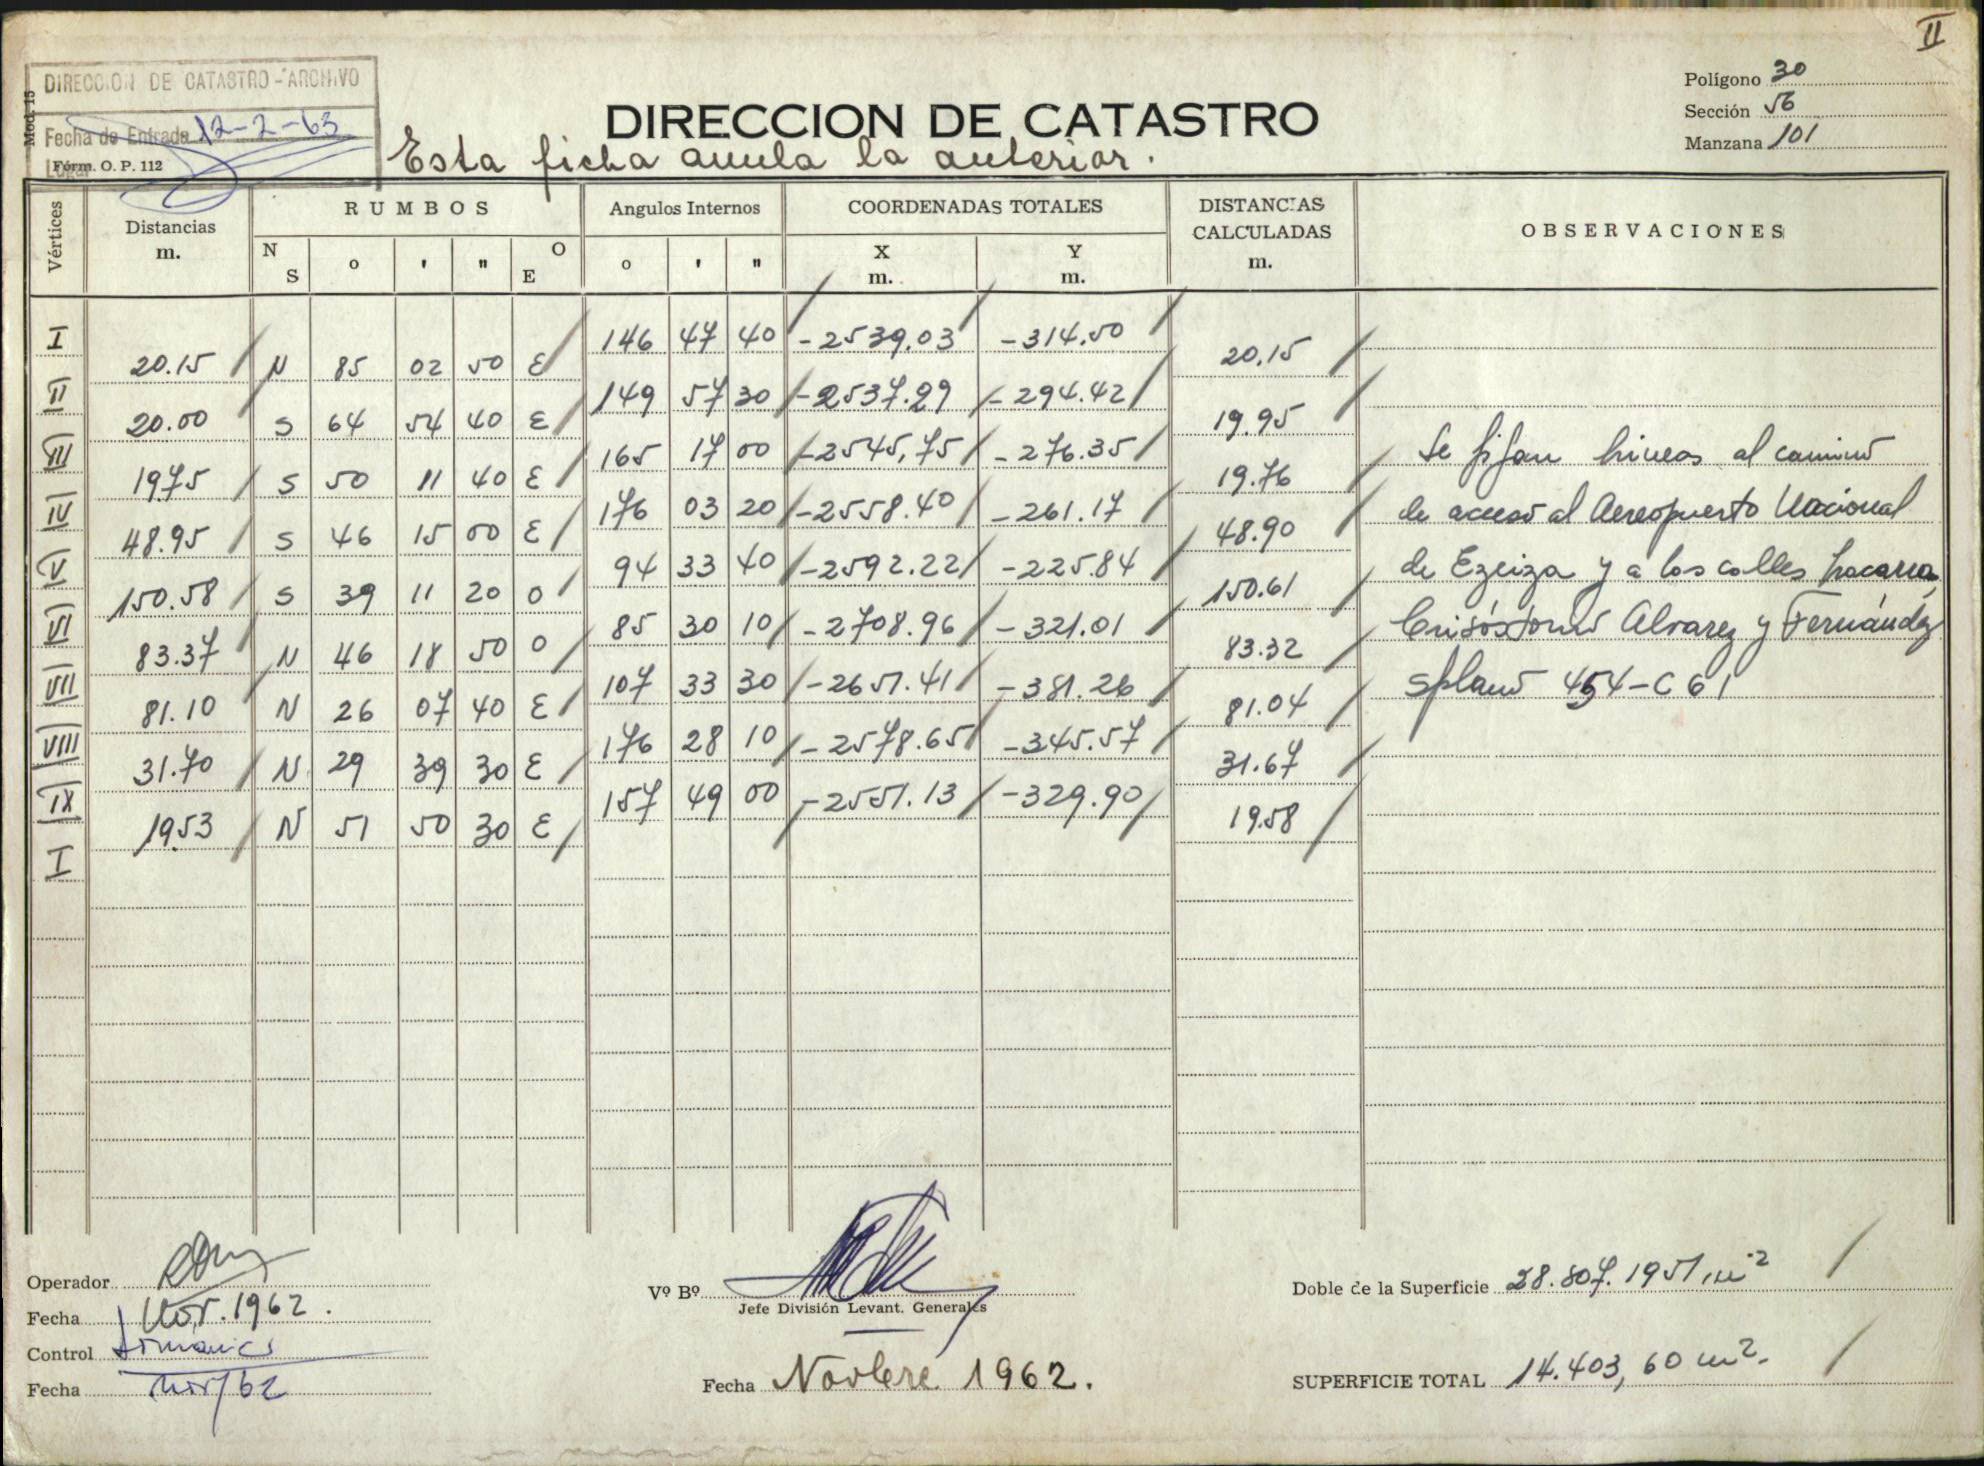 II
DIRECCION DE CATASTRO - ARCHIVO
Fecha de Entrada 12-2-63
Mod. 15
Form. O. P. 112
DIRECCION DE CATASTRO
Esta ficha anula la anterior.
Polígono 30
Sección 56
Manzana 101
Vértices
Distancias m.
RUMBOS
N S ° ' " O E
Angulos Internos
° ' "
COORDENADAS TOTALES
X m. Y m.
DISTANCIAS CALCULADAS m.
OBSERVACIONES
I 146 47 40 -2539.03 -314.50
20.15 N 85 02 50 E 20.15
II 149 57 30 -2537.29 -294.42
20.00 S 64 54 40 E 19.95
III 165 17 00 -2545,75 -276.35
19.75 S 50 11 40 E 19.76
IV 176 03 20 -2558.40 -261.17
48.95 S 46 15 00 E 48.90
V 94 33 40 -2592.22 -225.84
150.58 S 39 11 20 O 150.61
VI 85 30 10 -2708.96 -321.01
83.37 N 46 18 50 O 83.32
VII 107 33 30 -2651.41 -381.26
81.10 N 26 07 40 E 81.04
VIII 176 28 10 -2578.65 -345.57
31.70 N 29 39 30 E 31.67
IX 157 49 00 -2551.13 -329.90
19.53 N 51 50 30 E 19.58
I
Se fijan lineas al camino
de acceso al Aereopuerto Nacional
de Ezeiza y a las calles
Crisóstomo Alvarez y Fernández
s/plano 454-C 61
Operador
Fecha Nov. 1962.
Control
Fecha Nov/62
Vº Bº
Jefe División Levant. Generales
Fecha Novbre 1962.
Doble de la Superficie 28.807.1951 m²
SUPERFICIE TOTAL 14.403,60 m².